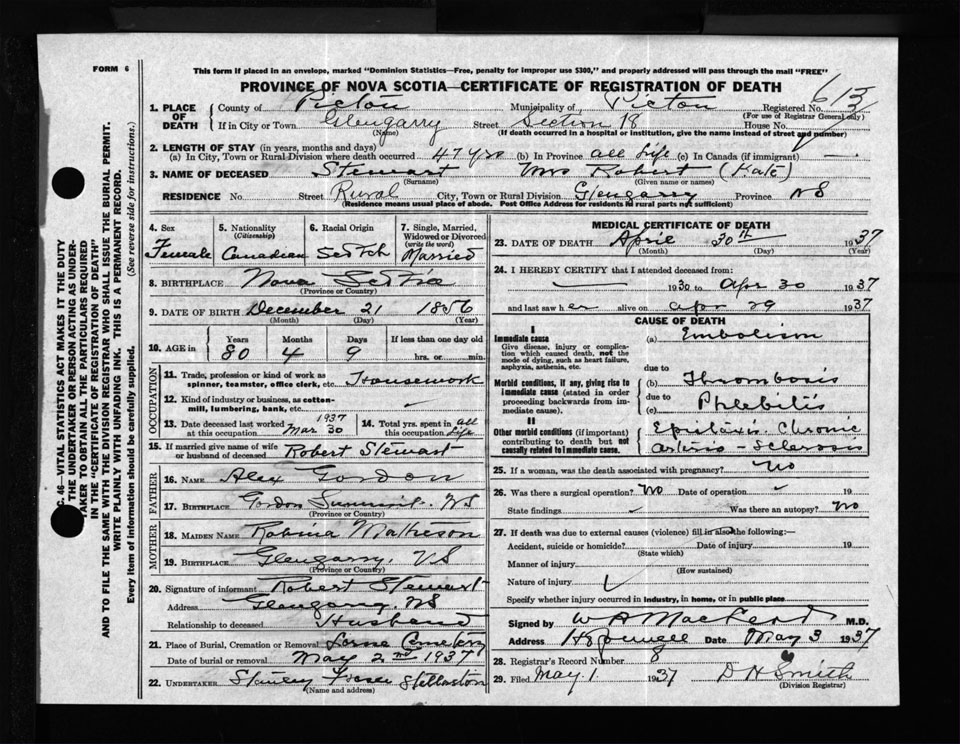 FORM 6
This form if placed in an envelope, marked "Dominion Statistics—Free, penalty for improper use $300," and properly addressed will pass through the mail "FREE"
PROVINCE OF NOVA SCOTIA—CERTIFICATE OF REGISTRATION OF DEATH
1. PLACE OF DEATH County of Pictou Municipality of Pictou Registered No. 613
(For use of Registrar General only)
If in City or Town Glengarry Street Section 18 House No.
(Name) (If death occurred in a hospital or institution, give the name instead of street and number)
2. LENGTH OF STAY (in years, months and days)
(a) In City, Town or Rural Division where death occurred 47 yrs (b) In Province all life (c) In Canada (if immigrant) —
3. NAME OF DECEASED Stewart Mrs Robert (Kate)
(Surname) (Given name or names)
RESIDENCE No. Street Rural City, Town or Rural Division Glengarry Province NS
(Residence means usual place of abode. Post Office Address for residents in rural parts not sufficient)
4. Sex 5. Nationality 6. Racial Origin 7. Single, Married, Widowed or Divorced
(Citizenship) (write the word)
Female Canadian Scotch Married
8. BIRTHPLACE Nova Scotia
(Province or Country)
9. DATE OF BIRTH December 21 1856
(Month) (Day) (Year)
10. AGE in Years Months Days If less than one day old
80 4 9 hrs. or min.
OCCUPATION
11. Trade, profession or kind of work as spinner, teamster, office clerk, etc. Housework
12. Kind of industry or business, as cotton-mill, lumbering, bank, etc.
13. Date deceased last worked at this occupation 1937 Mar 30 14. Total yrs. spent in this occupation all life
15. If married give name of wife or husband of deceased Robert Stewart
FATHER
16. NAME Alex Gordon
17. BIRTHPLACE Gordon Summit. NS
(Province or Country)
MOTHER
18. MAIDEN NAME Robina Matheson
19. BIRTHPLACE Glengarry, NS
(Province or Country)
20. Signature of informant Robert Stewart
Address Glengarry. NS
Relationship to deceased Husband
21. Place of Burial, Cremation or Removal Lorne Cemetery
Date of burial or removal May 2nd 1937
22. UNDERTAKER Stanley Fraser Stellarton
(Name and address)
MEDICAL CERTIFICATE OF DEATH
23. DATE OF DEATH April 30th 1937
(Month) (Day) (Year)
24. I HEREBY CERTIFY that I attended deceased from
1930 to Apr 30 1937
and last saw her alive on Apr 29 1937
CAUSE OF DEATH
I
Immediate cause (a) Embolism
Give disease, injury or complication which caused death, not the mode of dying, such as heart failure, asphyxia, asthenia, etc.
due to
Morbid conditions, if any, giving rise to immediate cause (stated in order proceeding backwards from immediate cause). (b) Thrombosis
due to
(c) Phlebitis
II
Other morbid conditions (if important) contributing to death but not causally related to immediate cause. Epistaxis. Chronic
Arterio-Sclerosis
25. If a woman, was the death associated with pregnancy? No
26. Was there a surgical operation? No Date of operation 19
State findings Was there an autopsy? No
27. If death was due to external causes (violence) fill in also the following:—
Accident, suicide or homicide? Date of injury 19
(State which)
Manner of injury
(How sustained)
Nature of injury
Specify whether injury occurred in industry, in home, or in public place
Signed by M.D.
Address Hopewell Date May 3 1937
28. Registrar's Record Number 8
29. Filed May 1 1937 D H Smith
(Division Registrar)
C. 46—VITAL STATISTICS ACT MAKES IT THE DUTY
THE UNDERTAKER OR PERSON ACTING AS UNDER-
TAKER TO OBTAIN ALL THE PARTICULARS REQUIRED
IN THE "CERTIFICATE OF REGISTRATION OF DEATH"
AND TO FILE THE SAME WITH THE DIVISION REGISTRAR WHO SHALL ISSUE THE BURIAL PERMIT.
WRITE PLAINLY WITH UNFADING INK. THIS IS A PERMANENT RECORD.
Every item of information should be carefully supplied. (See reverse side for instructions.)